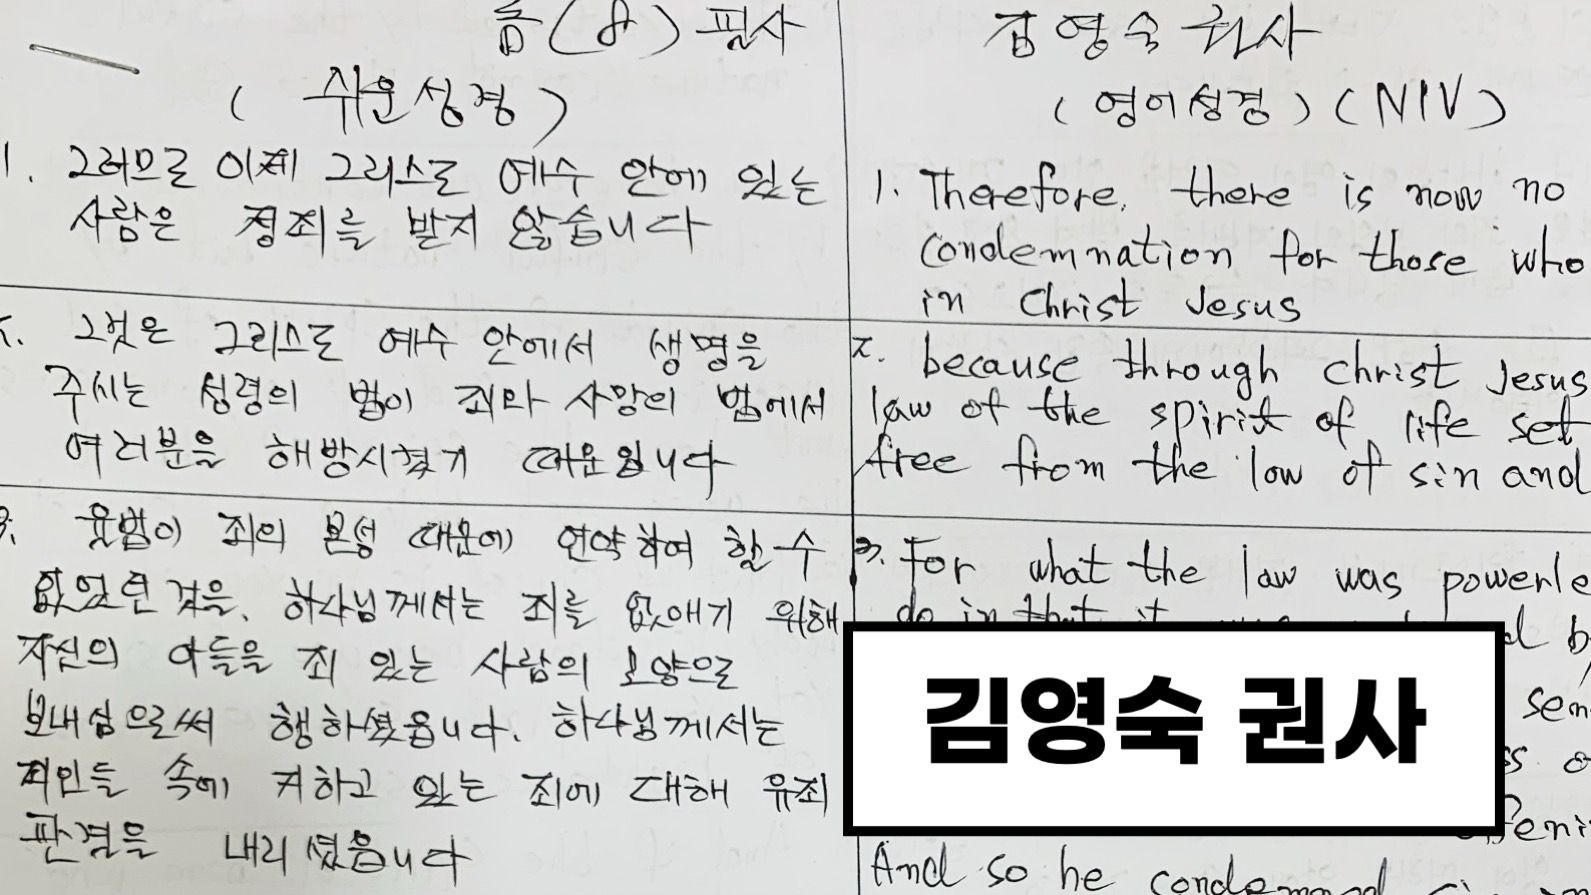 롬(8) 필사
(쉬운성경)
1. 그러므로 이제 그리스도 예수 안에 있는
사람은 정죄를 받지 않습니다
2. 그것은 그리스도 예수 안에서 생명을
주시는 성령의 법이 죄와 사망의 법에서
여러분을 해방시켰기 때문입니다
3. 율법이 죄의 본성 때문에 연약하여 할 수
없었던 것을, 하나님께서는 죄를 없애기 위해
자신의 아들을 죄 있는 사람의 모양으로
보내심으로써 행하셨읍니다. 하나님께서는
죄인들 속에 거하고 있는 죄에 대해 유죄
판결을 내리셨읍니다
김영숙 권사
(영어성경) (NIV)
1. Therefore, there is now no
condemnation for those who
in Christ Jesus
2. because through Christ Jesus
law of the spirit of life set
free from the low of sin and
3. For what the law was powerle
do in that it
sen
And so he condemned
김영숙 권사